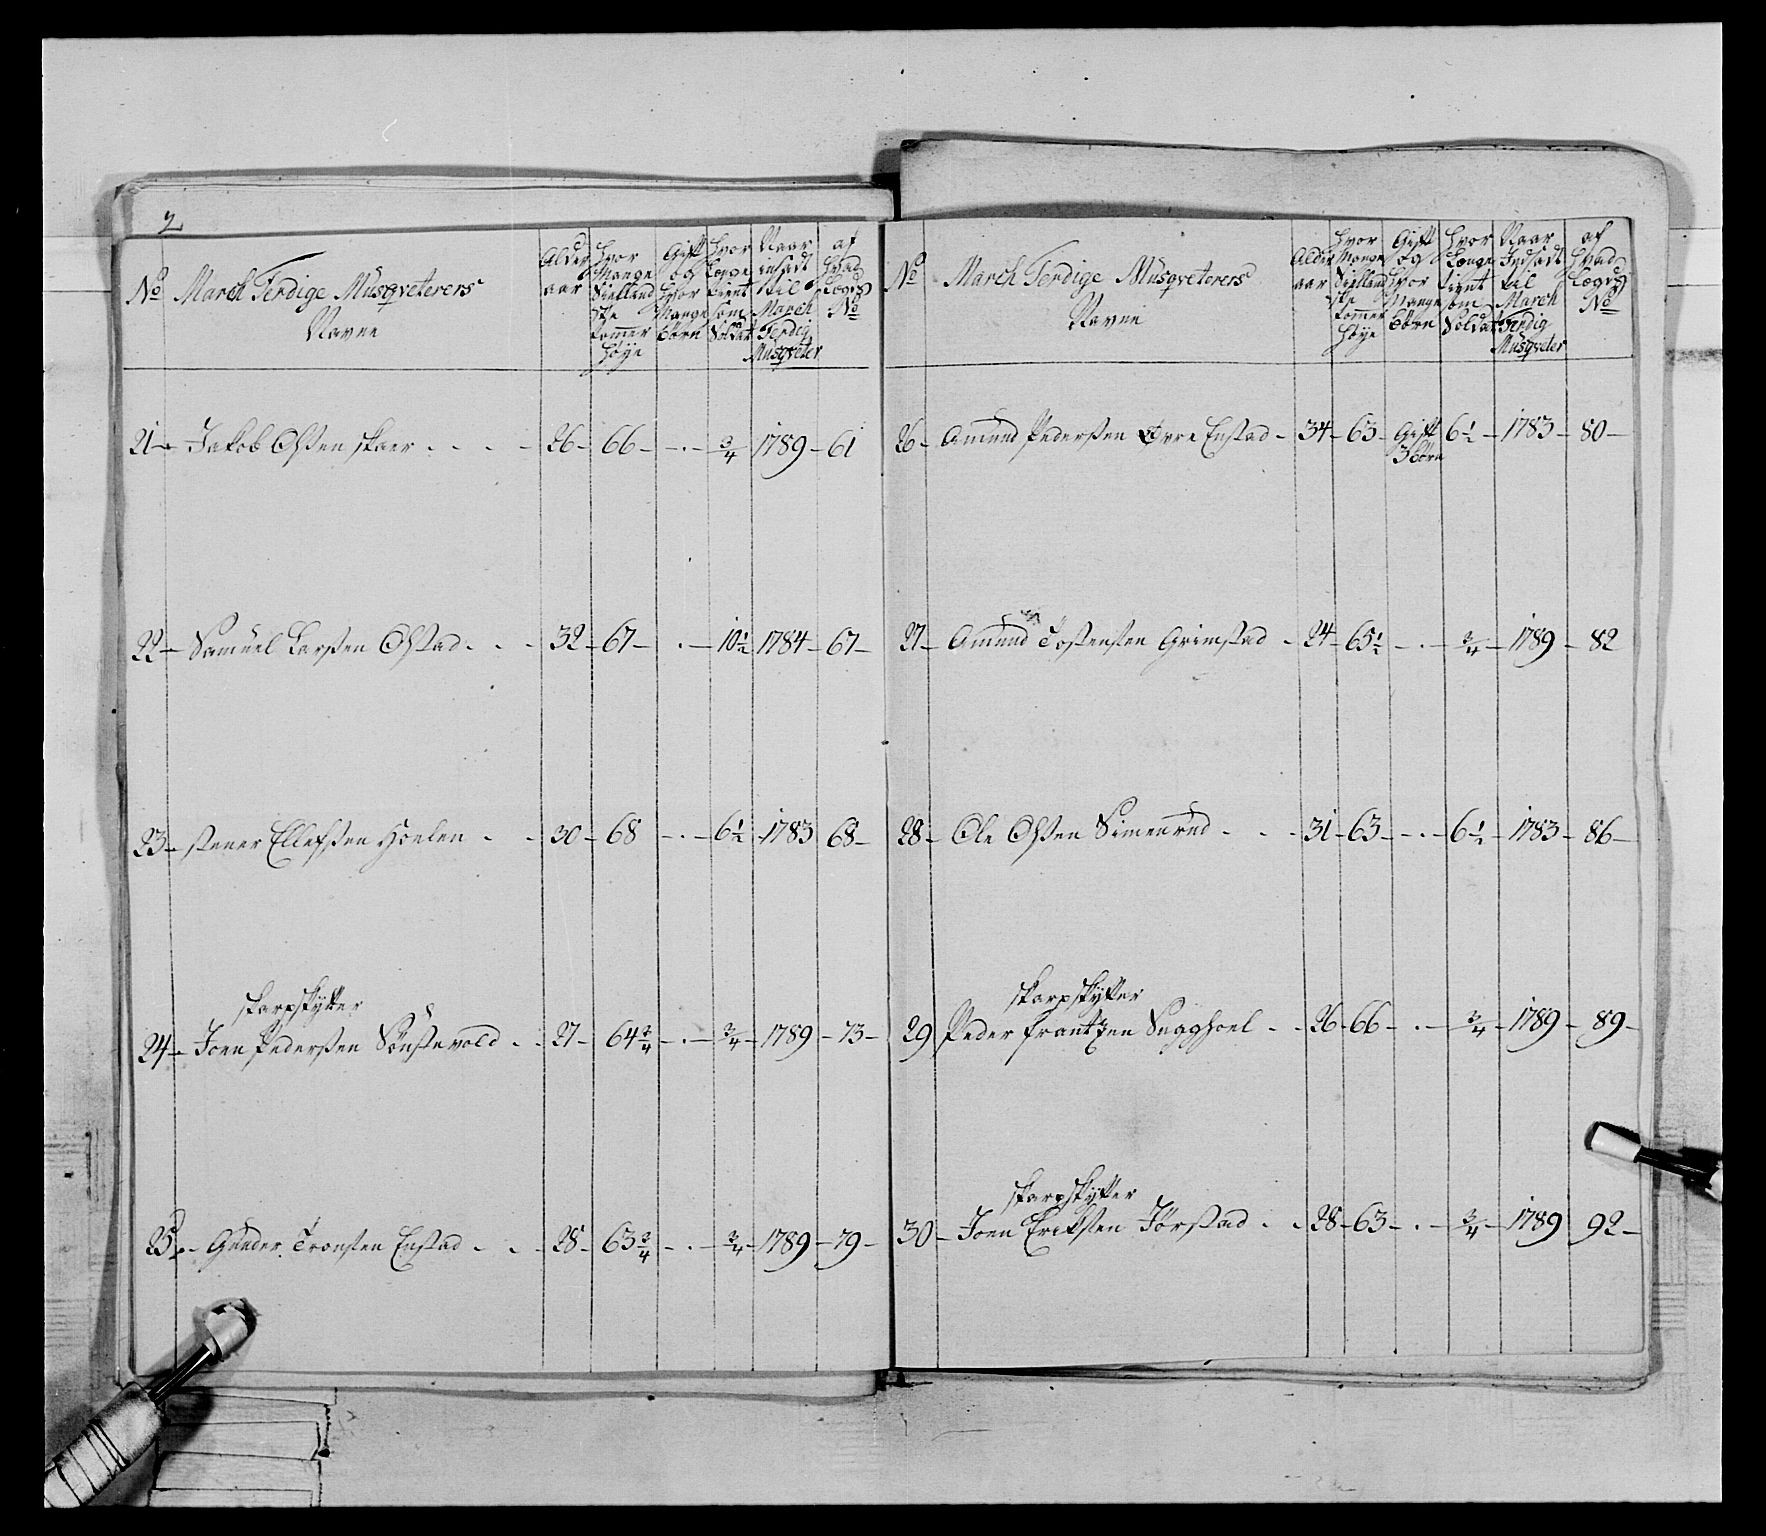 2
No March Ferdige Musqveterers Navne | Alder aar | Hvor Mange Siellandske tommer Høye | Gift og Hvor Mange børn | Hvor Længe tient som Soldat | Naar indsadt til March Ferdig Musqveter | af Hvad Lægds No
21 - Jakob Olsen skaer - 26 - 66 - . - 3/4 1789 - 61
22 - Samuel Larssen Olstad - 32 - 67 - . - 10 1/2 1784 - 67 -
23 - stener Ellefssen Hoelen - 30 - 68 - . - 6 1/2 - 1783 68 -
skarpskytter
24 - Joen Pederssen Sønstevold - 27 - 64 3/4 - . - 3/4 - 1789 - 73 -
25 - Gunder Tronsten Enstad - 28 - 63 3/4 - . - 3/4 - 1789 - 79 -
No March Ferdige Musqveterers Navne | Alder aar | Hvor Mange Siellandske tommer Høye | Gift og Hvor Mange børn | Hvor Længe tient som Soldat | Naar Indsadt til March Ferdig Musqveter | af Hvad Lægds No
26 - Amund Pederssen Øvre Enstad - 34 - 63 - Gift 3 børn 6 1/2 - 1783 - 80 -
27 - Amund Tostensten Grimstad - 24 - 65 1/2 - . - 3/4 - 1789 - 82
28 - Ole Olssen Simenrud - 31 - 63 - . - 6 1/2 - 1783 - 86 -
skarpskytter
29 Peder frantzen Snaghoel - 26 - 66 - . - 3/4 - 1789 - 89 -
skarpskytter
30 - Joen Eriksten Jørstad - 28 - 63 - . - 3/4 - 1789 92 -